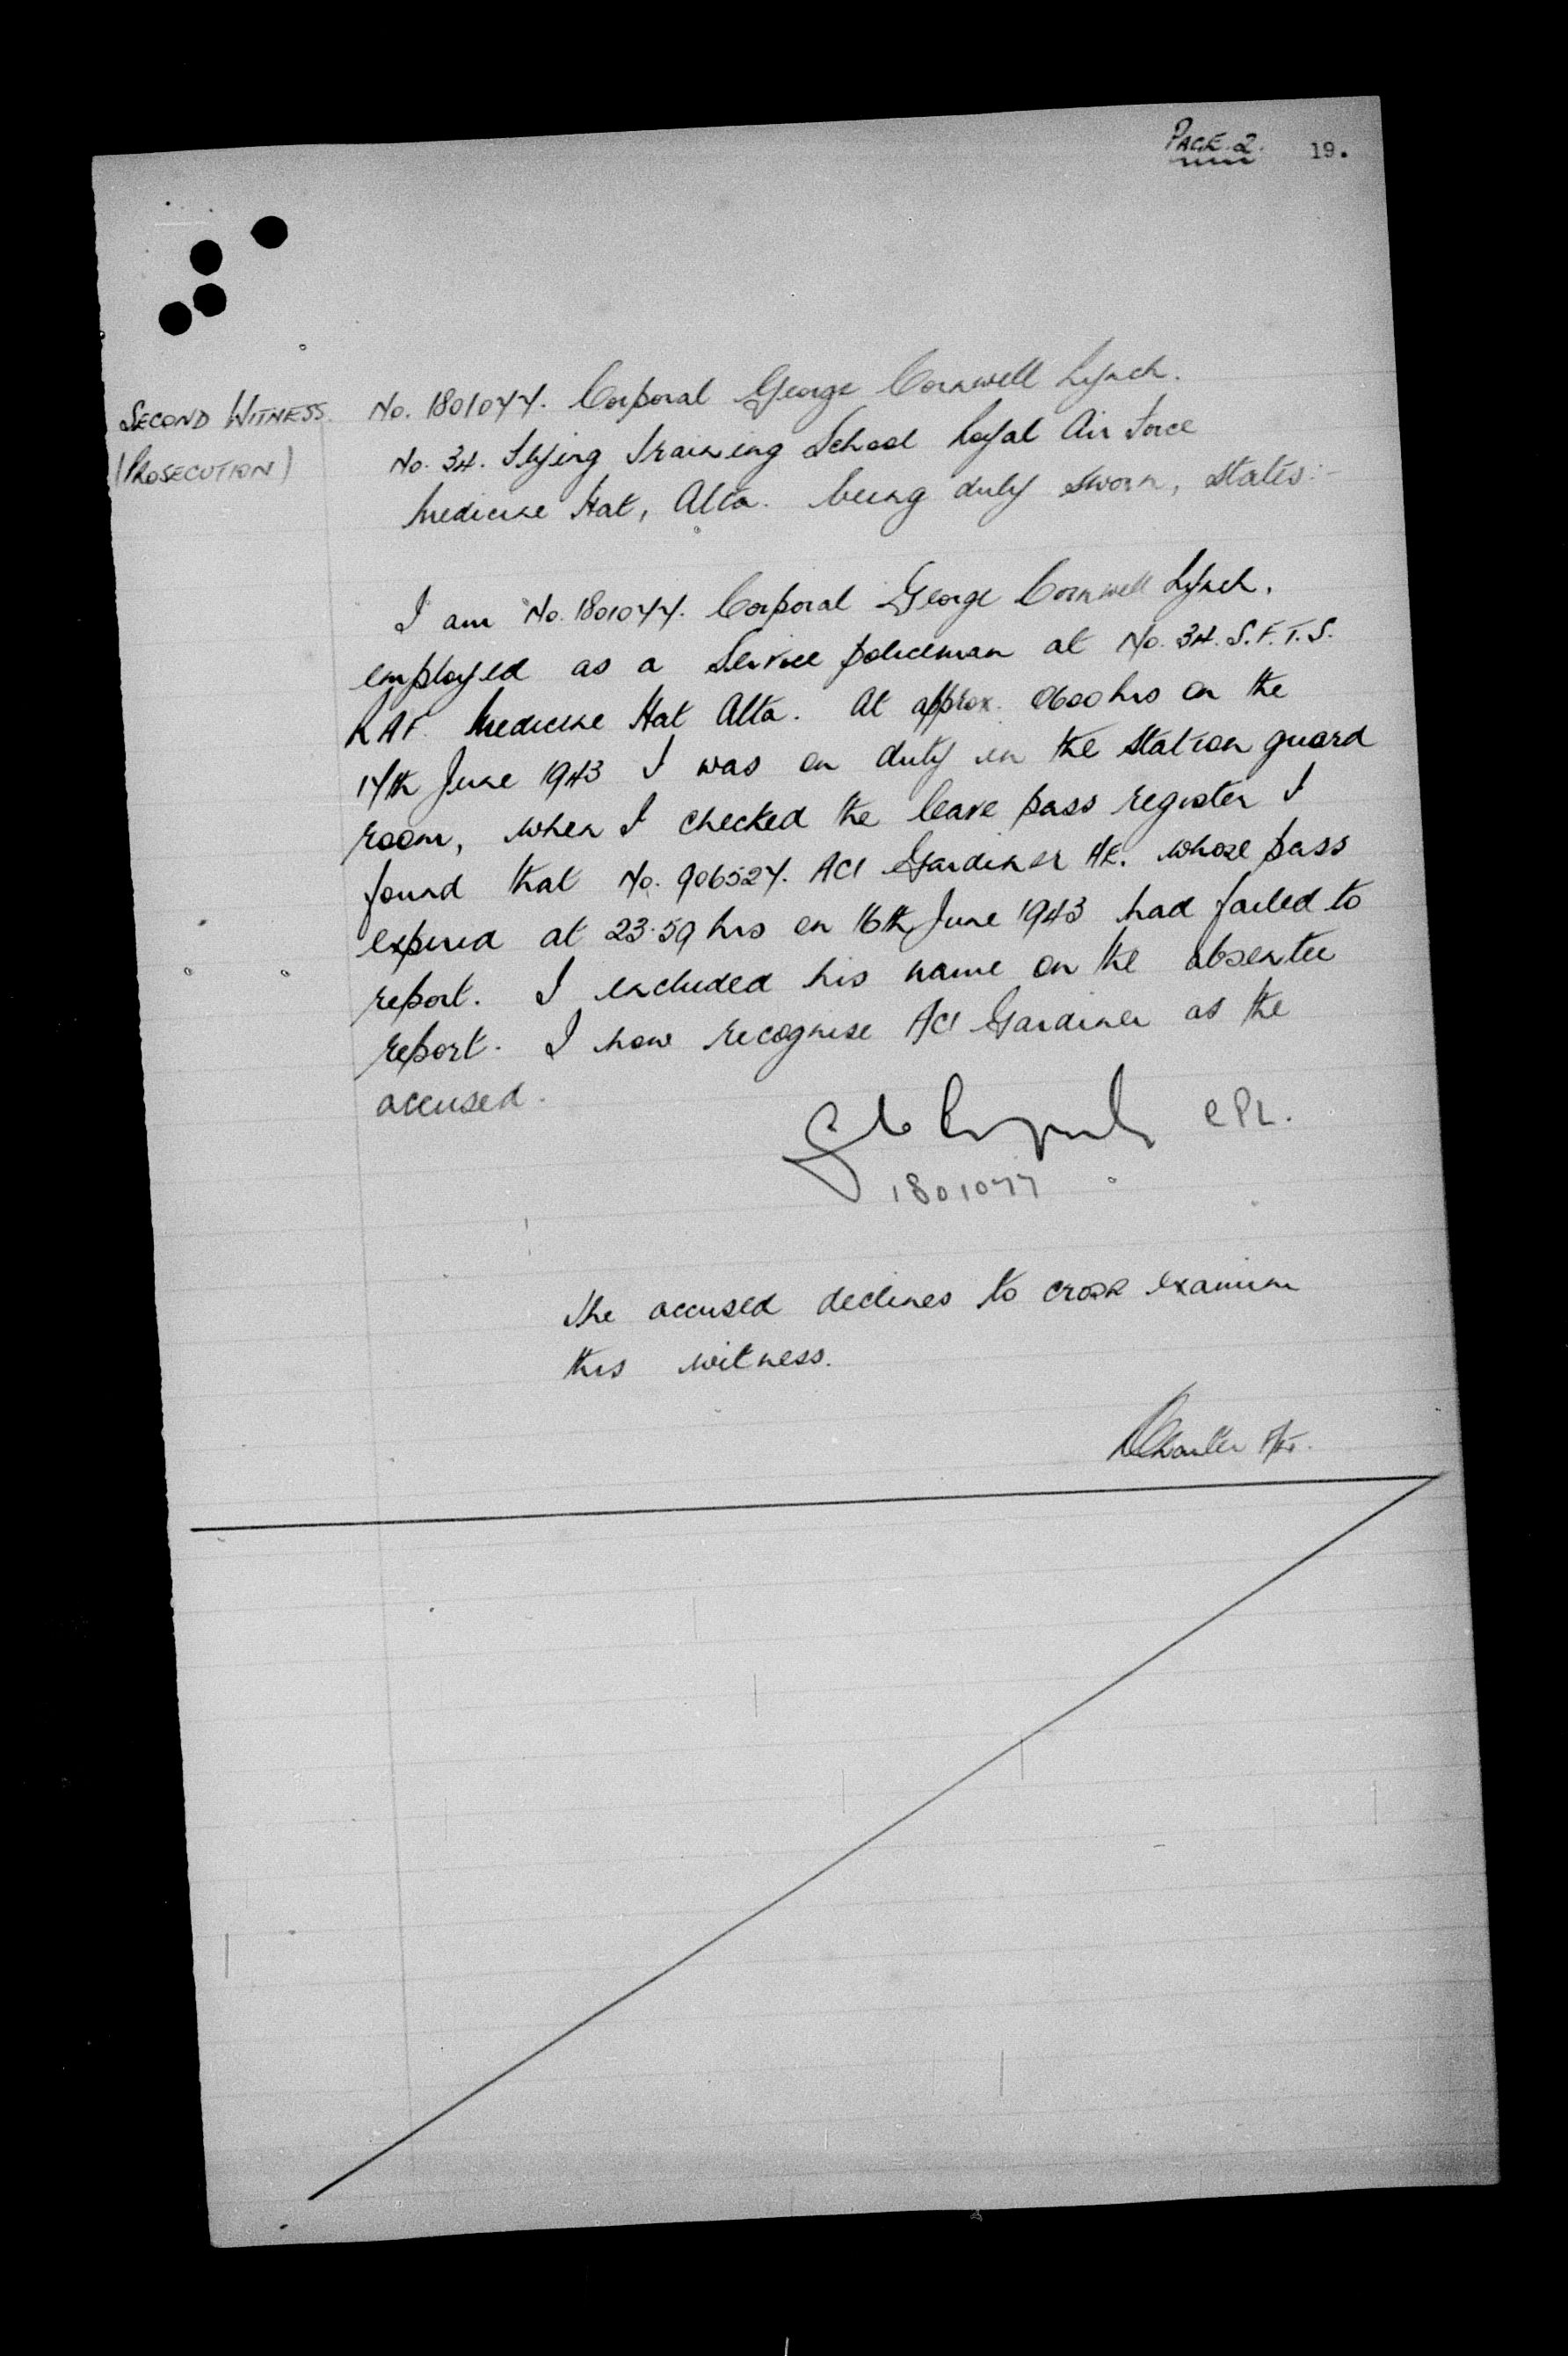 PAGE.2. 19.
SECOND WITNESS. No. 1801077. Corporal George Cornwell Lynch.
(PROSECUTION) No. 34. Flying Training School Royal Air Force
Medicine Hat, Alta. being duly sworn, states:-
I am No. 1801077. Corporal George Cornwell Lynch.
employed as a Service policeman at No. 34. S.F.T.S.
RAF. Medicine Hat Alta. At approx. 0600 hrs on the
17th June 1943 I was on duty in the station guard
room, when I checked the leave pass register I
found that No. 906527. AC1 Gardiner HE. whose pass
expired at 23.59 hrs on 16th June 1943 had failed to
report. I included his name on the absentee
report. I now recognise AC1 Gardiner as the
accused.
G C Lynch CPL.
1801077
The accused declines to cross examine
this witness.
F/Lt.